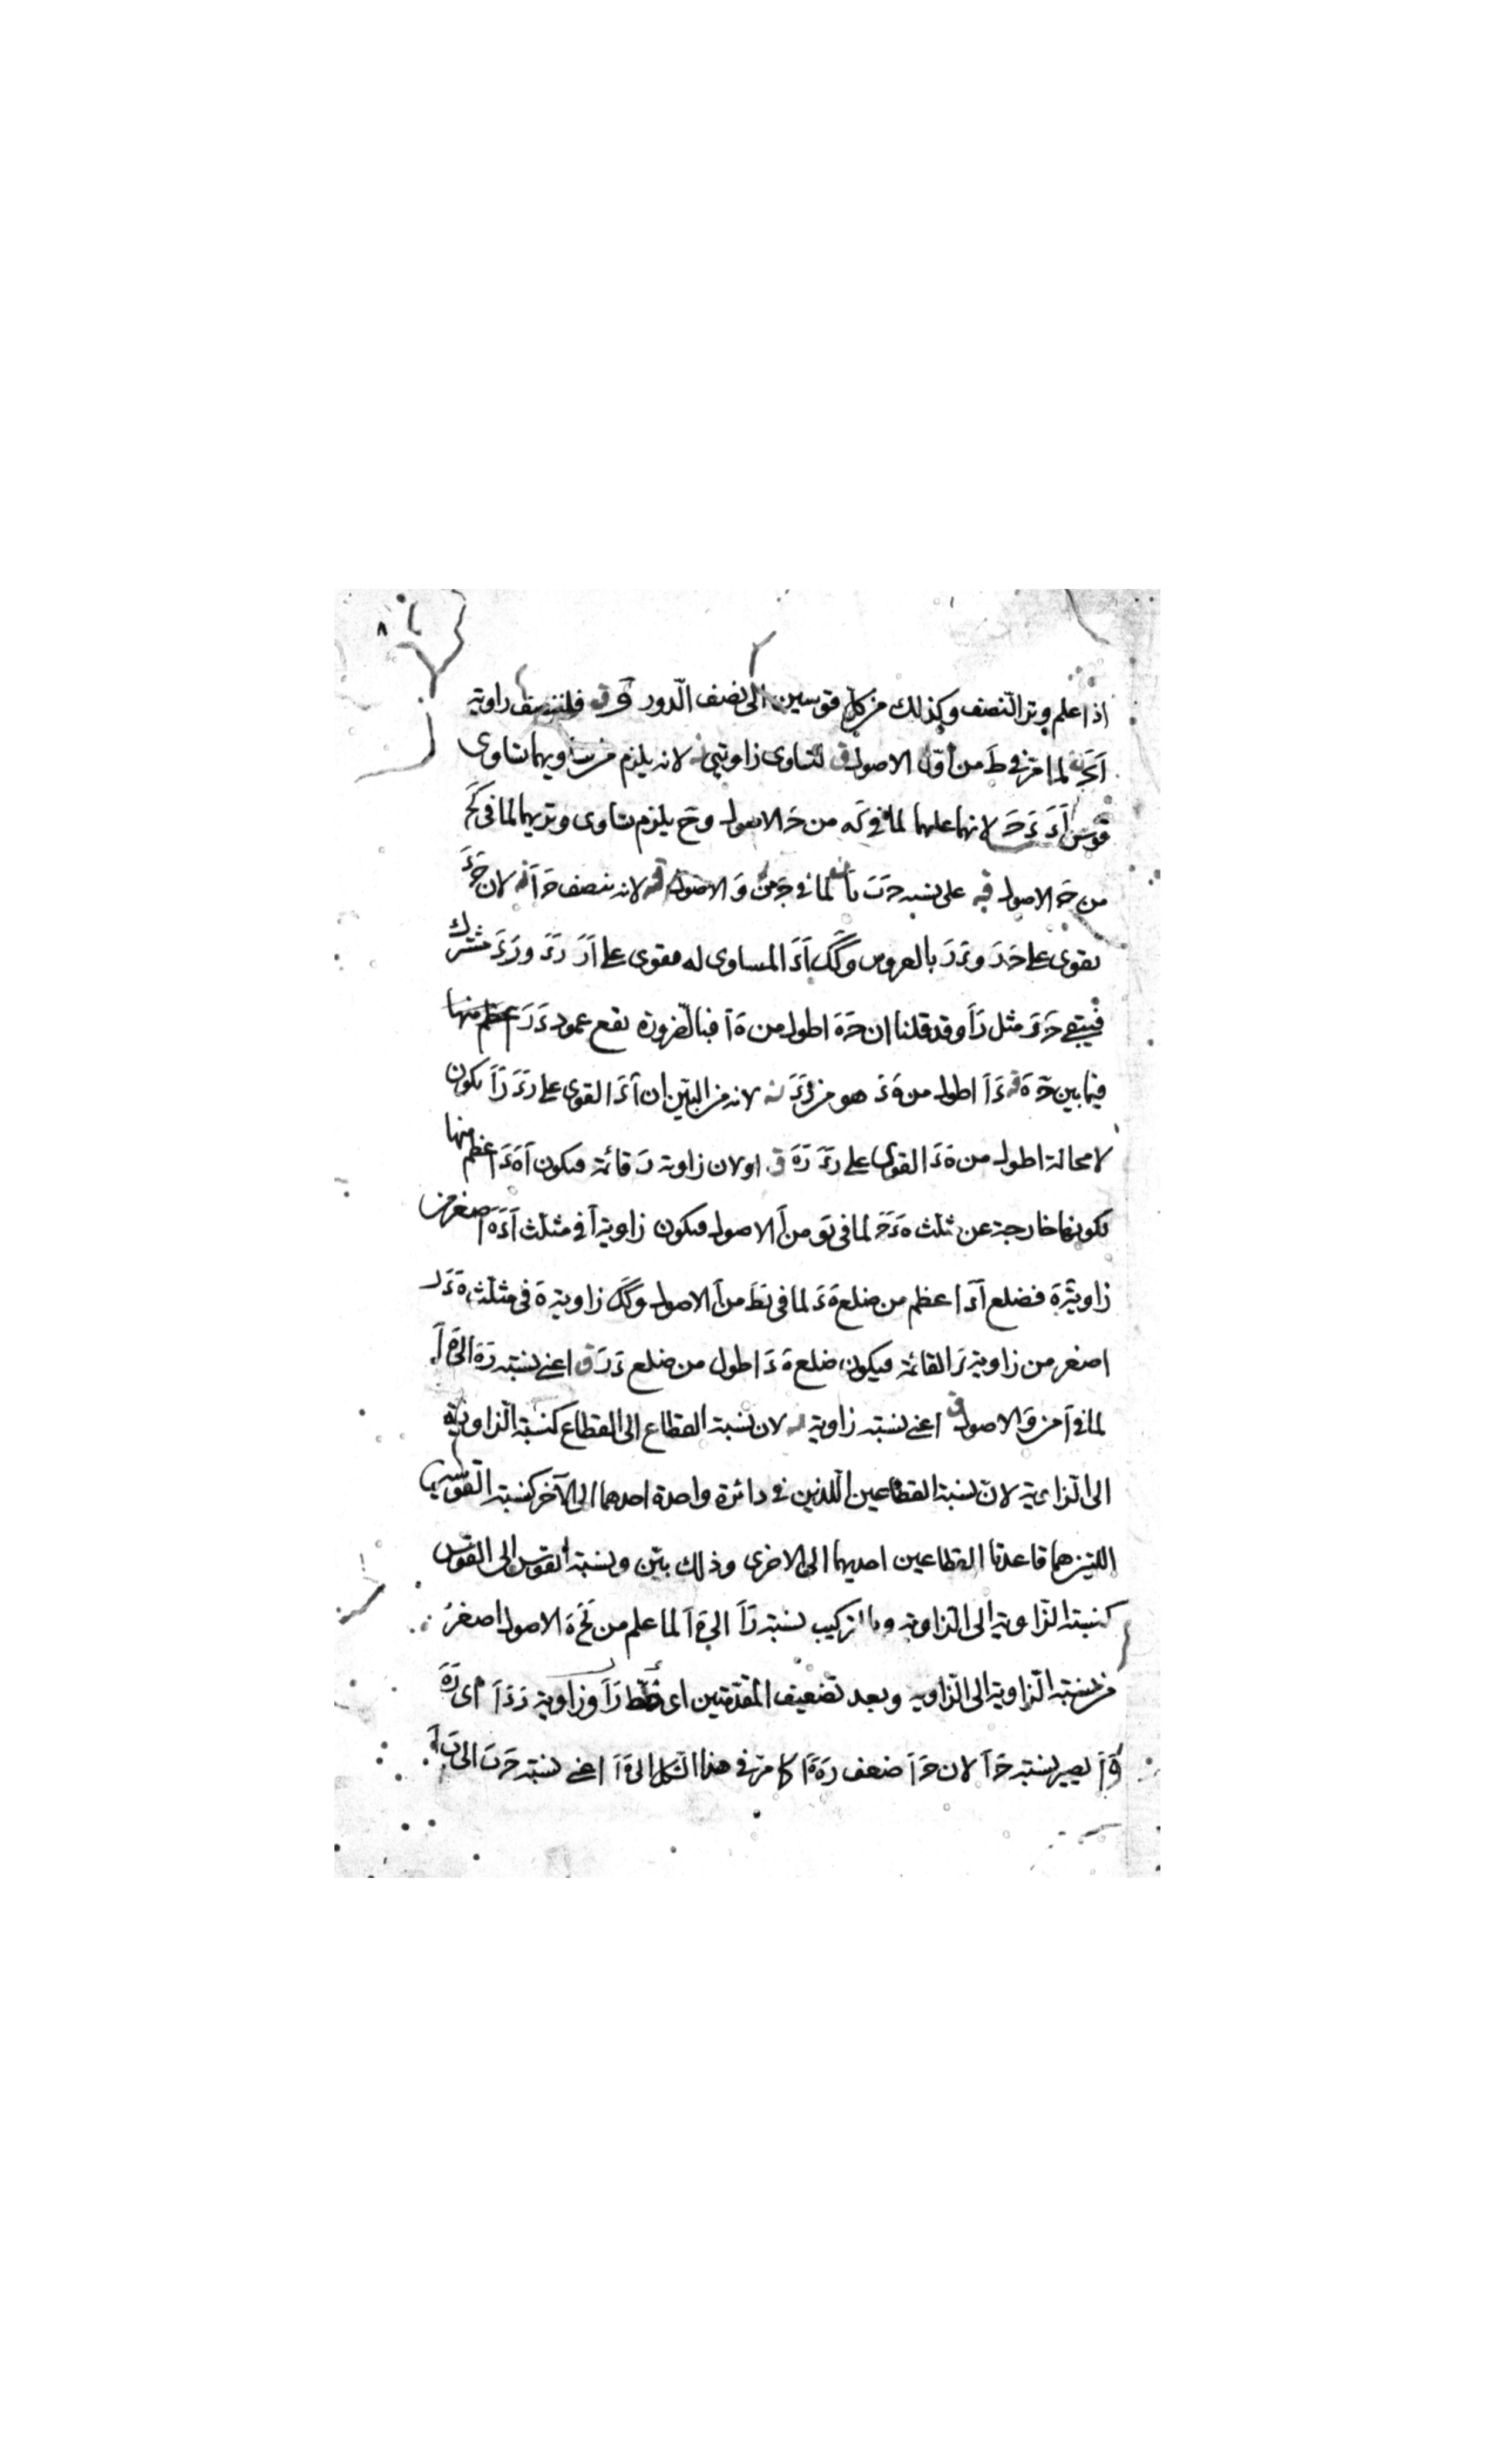 ٨
اذا علم وتر النصف وكذلك من كل قوسين الى نصف الدور ق فلننصف زاوية
لما مر في ط من اول الاصول ق لتساوى زاويتى لانه يلزم من تساويهما تساوى
قوسى اء ءح لانهما عليهما لما فى كه من ح الاصول وح يلزم تساوى وتريهما لما فى كح
من ح الاصول على نسبة حب با لما فى ج من و الاصول لانه ينصف حا لان حء
يقوى على حر وءر بالعروس وكك اء المساوى له يقوى على ار رء ورء مشترك
فيبقى حر مثل را وقد قلنا ان حه اطول من ه ا فبالضرورة يقع عمود ءر
فيما بين حه ءا اطول من هء هو من رء لانه من البين ان اء القوى على رء را يكون
لا محالة اطول من هء القوى على رء ره ق اولان زاوية ر قائمة فيكون اهء اعظم منها
لكونها خارجة عن مثلث هءر لما فى يو من ا الاصول فيكون زاوية ا فى مثلث اءه اصغر من
زاوية ه فضلع اء اعظم من ضلع هء لما فى يط من ا الاصول وكك زاوية ه فى مثلث هءر
اصغر من زاوية ر القائمة فيكون ضلع هء اطول من ضلع ءر ق اعنى نسبة ره الى ه ا
لما فى ا من و الاصول ق اعنى نسبة زاوية لان نسبة القطاع الى القطاع كنسبة الزاوية
الى الزاوية لان نسبة القطاعين اللذين فى دائرة واحدة احدهما الى الآخر كنسبة القوسين
اللتين هما قاعدتا القطاعين احديهما الى الاخرى وذلك بين ونسبة القوس الى القوس
كنسبة الزاوية الى الزاوية وبالتركيب نسبة را الى ه ا لما علم من كح ه الاصول اصغر
من نسبة الزاوية الى الزاوية وبعد تضعيف المقدمتين اى خط را وزاوية رءا اى ره
و ه ا يصير نسبة حا لان حا ضعف ره ه ا كما مر فى هذا الشكل الى ه ا اعنى نسبة حب الى ب ا